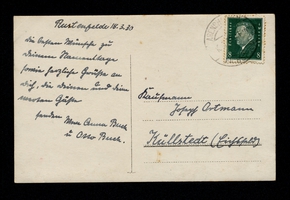 Rustenfelde 18.3.30
Die besten Wünsche zu
deinem Namenstage
sowie herzliche Grüße an
dich, die deinen und dein
Gäste
senden Anna Buch
u. Otto Buch.
Kaufmann
Josef Ortmann
Küllstedt (Eichsfeld)
8